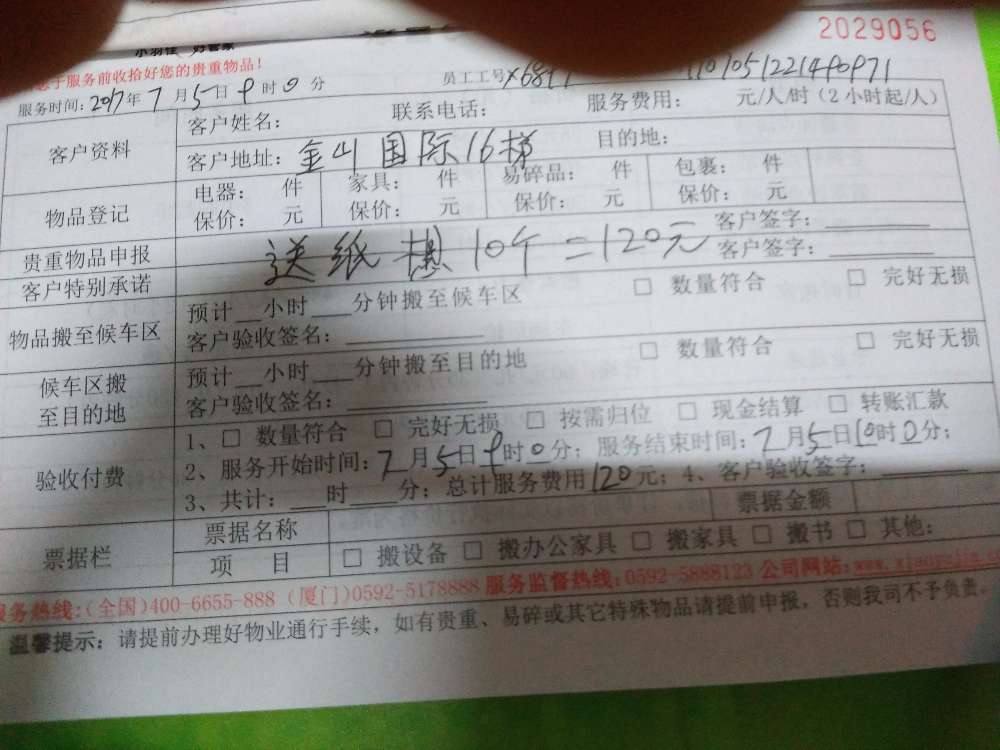 小羽佳 好管家
2029056
于服务前收拾好您的贵重物品!
服务时间:2017年7月5日9时0分 员工工号
客户资料
客户姓名: 联系电话: 服务费用: 元/人/时(2小时起/人)
客户地址:金山国际16梯 目的地:
物品登记
电器: 件 家具: 件 易碎品: 件 包裹: 件
保价: 元 保价: 元 保价: 元 保价: 元
贵重物品申报 客户签字:
送纸箱10个=120元
客户特别承诺 客户签字:
物品搬至候车区
预计__小时___分钟搬至候车区 □ 数量符合 □ 完好无损
客户验收签名:
候车区搬至目的地
预计__小时___分钟搬至目的地 □ 数量符合 □ 完好无损
客户验收签名:
验收付费
1、□ 数量符合 □ 完好无损 □ 按需归位 □ 现金结算 □ 转账汇款
2、服务开始时间:7月5日9时0分; 服务结束时间:7月5日10时0分;
3、共计:___时 分; 总计服务费用120元; 4、客户验收签字:
票据栏
票据名称 票据金额
项 目 □ 搬设备 □ 搬办公家具 □ 搬家具 □ 搬书 □ 其他:
服务热线:(全国)400-6655-888 (厦门)0592-5178888 服务监督热线:0592-5888123 公司网站:
温馨提示:请提前办理好物业通行手续,如有贵重、易碎或其它特殊物品请提前申报,否则我司不予负责。